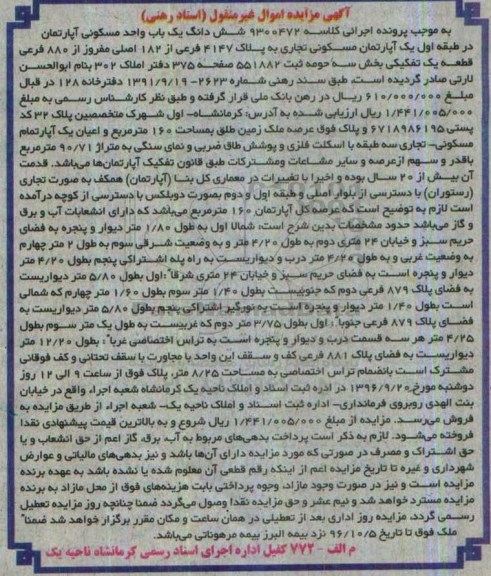 آگهی مزایده اموال غیرمنقول (اسناد رهنی)
به موجب پرونده اجرائی کلاسه ۹۳۰۰۴۷۲ شش دانگ یک باب واحد مسکونی آپارتمان
در طبقه اول یک آپارتمان مسکونی تجاری به پلاک ۴۱۴۷ فرعی از ۱۸۲ اصلی مفروز از ۸۸۰ فرعی
قطعه یک تفکیکی بخش سه حومه ثبت ۵۵۱۸۸۲ صفحه ۳۷۵ دفتر املاک ۳۰۲ بنام ابوالحسن
لارتی صادر گردیده است، طبق سند رهنی شماره ۲۶۲۳-۱۳۹۱/۹/۱۹ دفترخانه ۱۲۸ در قبال
مبلغ ۶۱۰/۰۰۰/۰۰۰ ریال در رهن بانک ملی قرار گرفته و طبق نظر کارشناس رسمی به مبلغ
۱/۴۴۱/۰۰۵/۰۰۰ ریال ارزیابی شده به آدرس: کرمانشاه- اول شهرک متخصصین پلاک ۳۲ کد
پستی ۶۷۱۸۹۸۶۱۹۵ و پلاک فوق عرصه ملک زمین طلق بمساحت ۱۶۰ مترمربع و اعیان یک آپارتمام
مسکونی- تجاری سه طبقه با اسکلت فلزی و پوشش طاق ضربی و نمای سنگی به متراژ ۹۰/۷۱ مترمربع
باقدر و سهم ازعرصه و سایر مشاعات ومشترکات طبق قانون تفکیک آپارتمان‌ها می‌باشد. قدمت
آن بیش از ۲۰ سال بوده و اخیرا با تغییرات در معماری کل بنا (آپارتمان) همکف به صورت تجاری
(رستوران) با دسترسی از بلوار اصلی و طبقه اول و دوم بصورت دوبلکس با دسترسی از کوچه درآمده
است لازم به توضیح است که عرصه کل آپارتمان ۱۶۰ مترمربع می‌باشد که دارای انشعابات آب و برق
و گاز می‌باشد حدود مشخصات بدین شرح است: شمالا اول به طول ۱/۸۰ متر دیوار و پنجره به فضای
حریم سبز و خیابان ۲۴ متری دوم به طول ۴/۲۰ متر و به وضعیت شرقی سوم به طول ۲ متر چهارم
به وضعیت غربی و به طول ۴/۲۰ متر درب و دیواریست به راه پله اشتراکی پنجم بطول ۴/۲۰ متر
دیوار و پنجره است به فضای حریم سبز و خیابان ۲۴ متری شرقاً: اول بطول ۵/۸۰ متر دیواریست
به فضای پلاک ۸۷۹ فرعی دوم که جنوبیست بطول ۱/۴۰ متر سوم بطول ۱/۶۰ متر چهارم که شمالی
است بطول ۱/۴۰ متر دیوار و پنجره است به نورگیر اشتراکی پنجم بطول ۵/۸۰ متر دیواریست به
فضای پلاک ۸۷۹ فرعی جنوباً: اول بطول ۳/۷۵ متر دوم که غربیست به طول یک متر سوم بطول
۴/۲۵ متر هر سه قسمت درب و دیوار و پنجره است به تراس اختصاصی غرباً: بطول ۱۲/۲۰ متر
دیواریست به فضای پلاک ۸۸۱ فرعی کف و سقف این واحد با مجاورت با سقف تحتانی و کف فوقانی
مشترک است بانضمام تراس اختصاصی به مساحت ۸/۲۵ متر، پلاک فوق از ساعت ۹ الی ۱۲ روز
دوشنبه مورخ ۱۳۹۶/۹/۲۰ در ادره ثبت اسناد و املاک ناحیه یک کرمانشاه شعبه اجراء واقع در خیابان
بنت الهدی روبروی فرمانداری- اداره ثبت اسناد و املاک ناحیه یک- شعبه اجراء از طریق مزایده به
فروش می‌رسد. مزایده از مبلغ ۱/۴۴۱/۰۰۵/۰۰۰ ریال شروع و به بالاترین قیمت پیشنهادی نقدا
فروخته می‌شود. لازم به ذکر است پرداخت بدهی‌های مربوط به آب، برق، گاز اعم از حق انشعاب و یا
حق اشتراک و مصرف در صورتی که مورد مزایده دارای آن‌ها باشد و نیز بدهی‌های مالیاتی و عوارض
شهرداری و غیره تا تاریخ مزایده اعم از اینکه رقم قطعی آن معلوم شده یا نشده باشد به عهده برنده
مزایده است و نیز در صورت وجود مازاد، وجوه پرداختی بابت هزینه‌های فوق از محل مازاد به برنده
مزایده مسترد خواهد شد و نیم عشر و حق مزایده نقدا وصول می‌گردد ضمنا چنانچه روز مزایده تعطیل
رسمی گردد، مزایده روز اداری بعد از تعطیلی در همان ساعت و مکان مقرر برگزار خواهد شد ضمناً
ملک فوق تا تاریخ ۹۶/۱۰/۵ نزد بیمه البرز بیمه مرهوناتی می‌باشد.
م الف - ۷۷۲ کفیل اداره اجرای اسناد رسمی کرمانشاه ناحیه یک